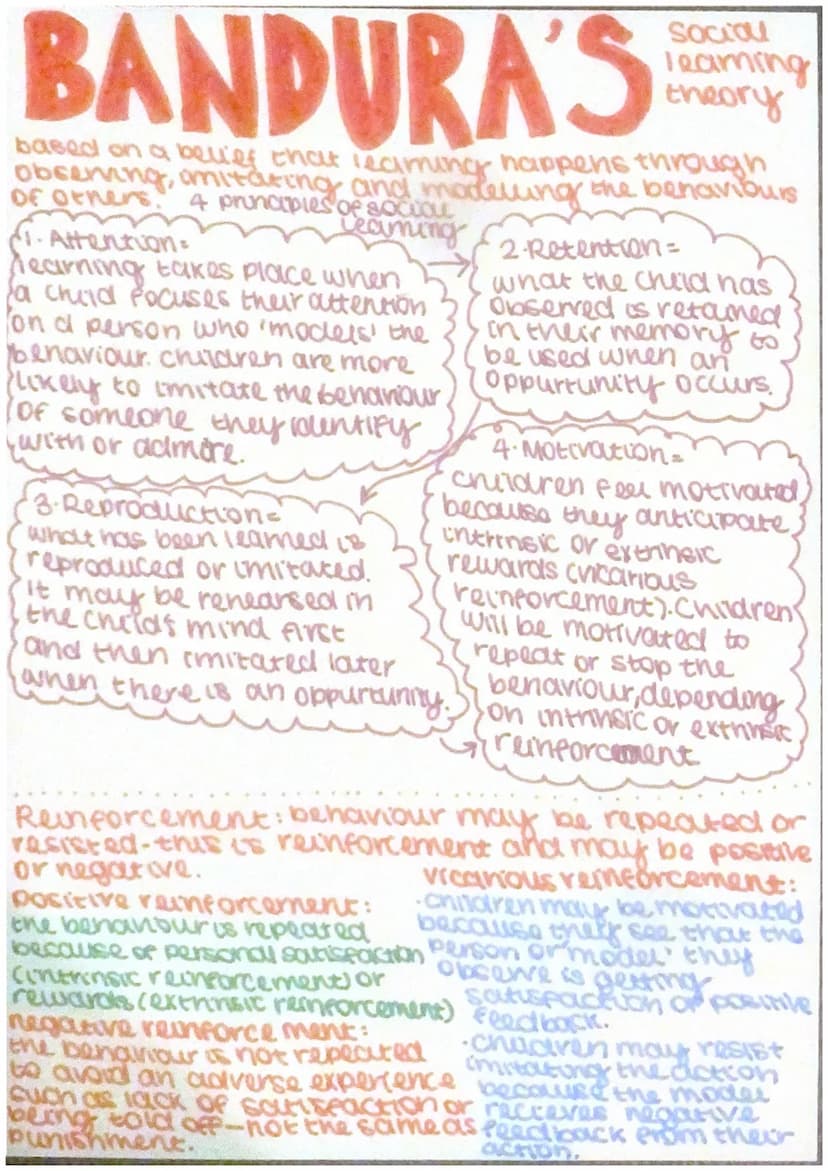 BANDURA'S
social
learning
theory
based on a belief that learning happens through
observing, imitating and modelling the behaviours
of others.
4 principles of social
learning
1. Attention =
learning takes place when
a child focuses their attention
on a person who 'models' the
behaviour. children are more
likely to imitate the behaviour
of someone they identify
with or admire.
2. Retention =
what the child has
observed is retained
in their memory to
be used when an
oppurtunity occurs.
3. Reproduction =
what has been learned is
reproduced or imitated.
it may be rehearsed in
the child's mind first
and then imitated later
when there is an oppurtunity.
4. Motivation =
children feel motivated
because they anticipate
intrinsic or extrinsic
rewards (vicarious
reinforcement). Children
will be motivated to
repeat or stop the
behaviour, depending
on intrinsic or extrinsic
reinforcement
Reinforcement: behaviour may be repeated or
resisted - this is reinforcement and may be positive
or negative.
positive reinforcement:
the behaviour is repeated
because of personal satisfaction
(intrinsic reinforcement) or
rewards (extrinsic reinforcement)
negative reinforcement:
the behaviour is not repeated
to avoid an adverse experience
such as lack of satisfaction or
being told off - not the same as
punishment.
vicarious reinforcement:
· children may be motivated
because they see that the
person or 'model' they
observe is getting
satisfaction or positive
feedback.
· children may resist
imitating the action
because the model
recieves negative
feedback from their
action.